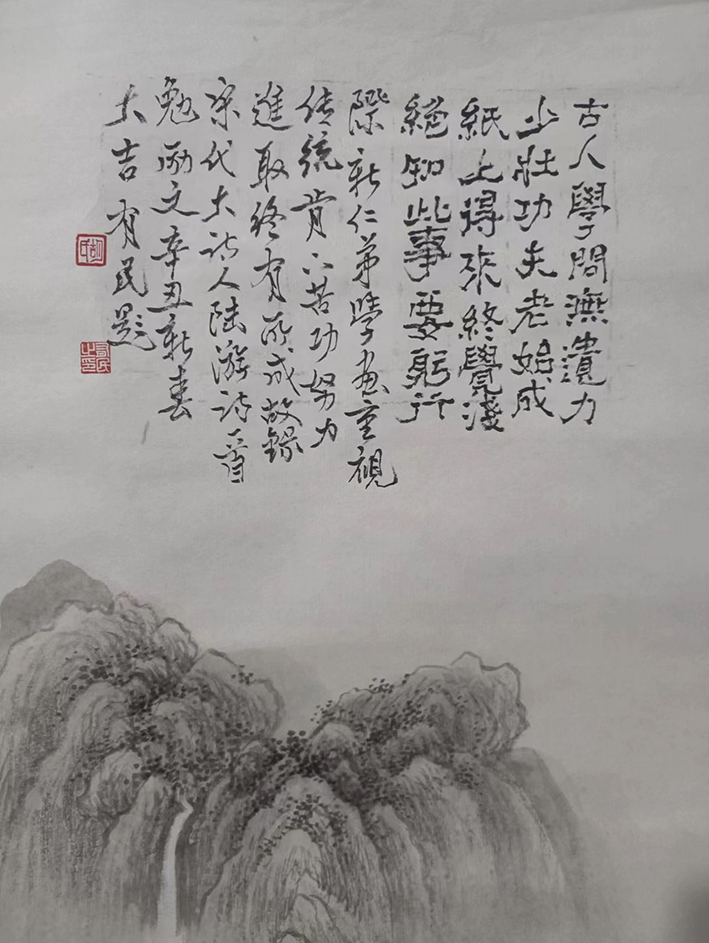 古人學問無遺力
少壯功夫老始成
紙上得來終覺淺
絕知此事要躬行
際新仁弟學画重視
传統肯下苦功努力
進取终有所成故録
宋代大诗人陆游诗一首
勉励文辛丑新春
大吉 有民题